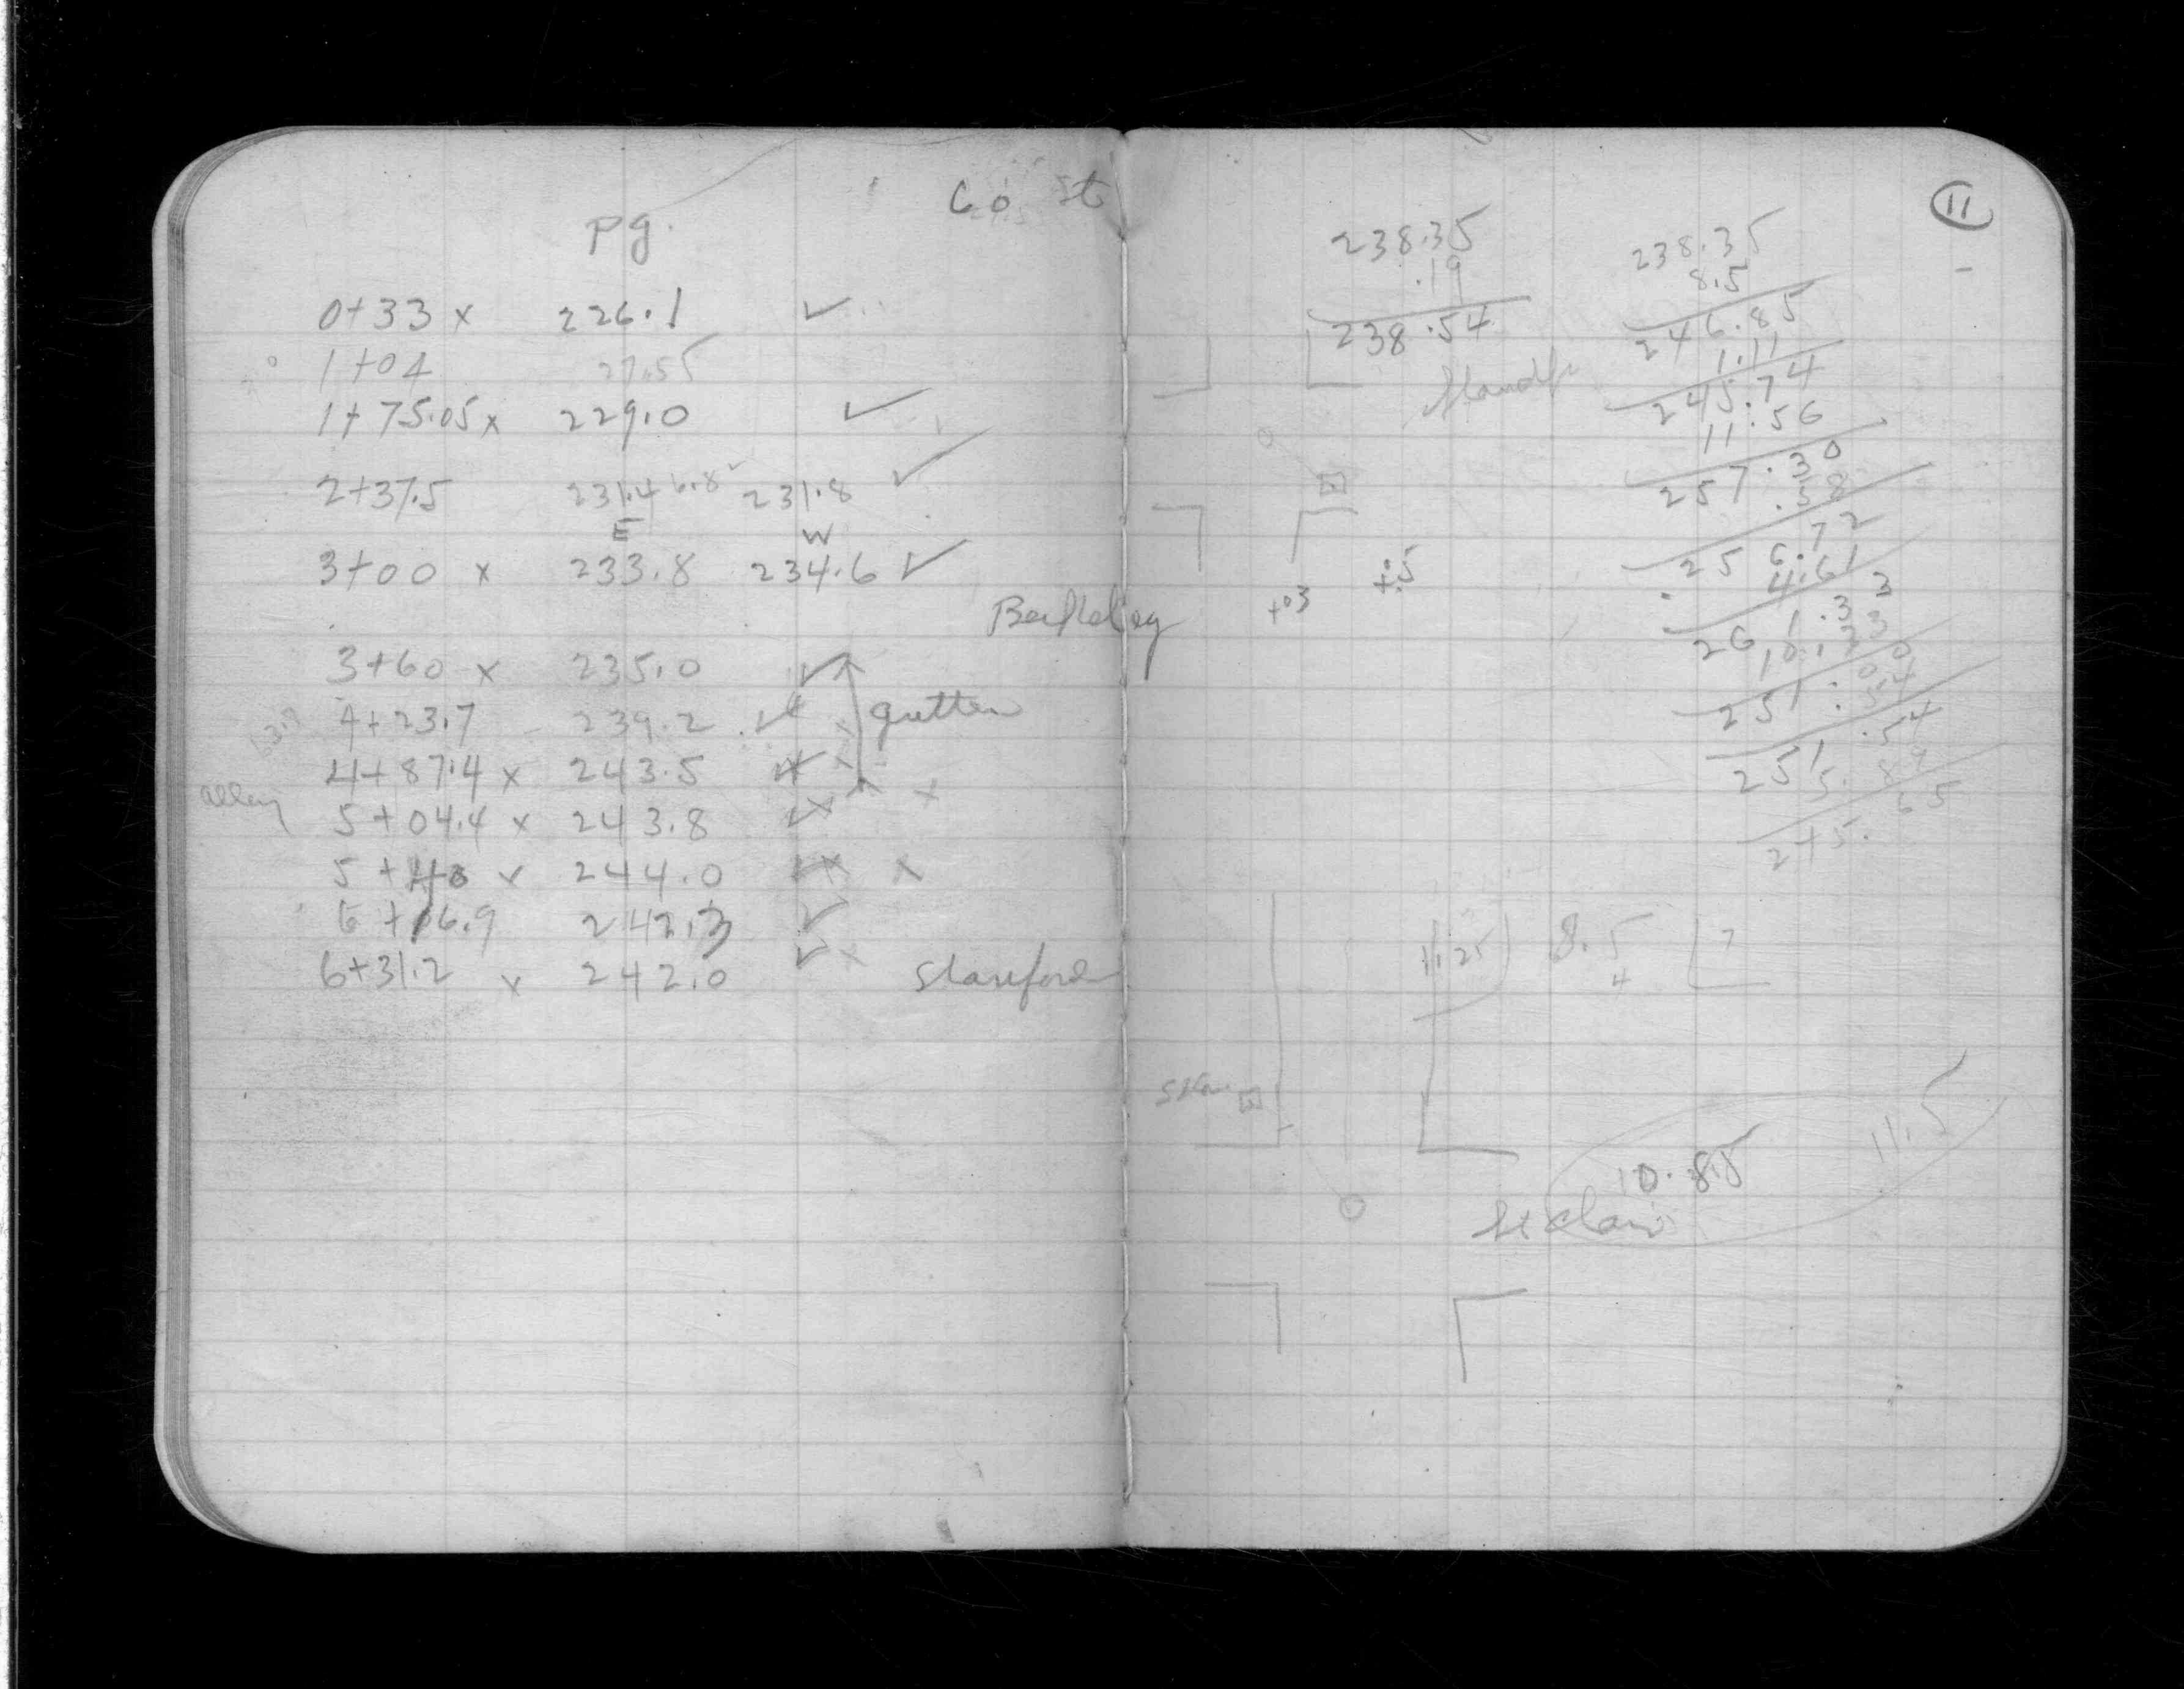 60 St
pg.
0+33 x 226.1 ✓
1+04 27.55
1+75.05 x 229.0 ✓
2+37.5 231.4 6.8 231.8 ✓
E W
3+00 x 233.8 234.6 ✓
Berkeley
3+60 x 235.0 ✓
4+23.7 239.2 ✓ gutter
4+87.4 x 243.5
alley 5+04.4 x 243.8 x
5+40 x 244.0 x
6+16.9 242.3 ✓
6+31.2 x 242.0 ✓ Stanford
11
238.35
.19
238.54
238.35
8.5
246.85
1.11
245.74
11.56
257.30
.58
256.72
4.61
261.33
10.33
251.00
.54
251.54
5.89
245.65
+03 +.5
11.25 8.5 7
4
11.5
10.85
St Clair